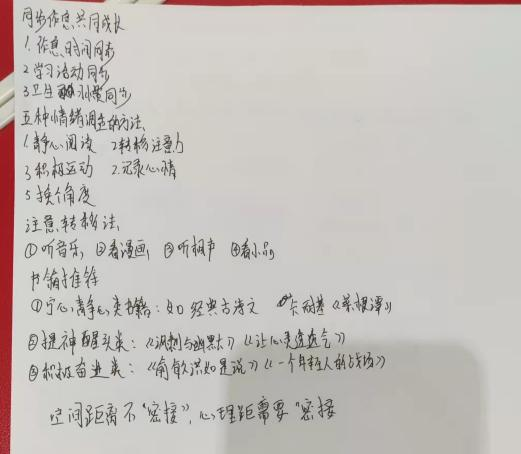 同步作息,共同成长
1.作息时间同步
2学习活动同步
3卫生习惯同步
五种情绪调节的方法、
1.静心阅读 2转移注意力
3积极运动 2.记录心情
5换个角度
注意转移法、
①听音乐, ②看漫画, ③听相声 ④看小品,
书籍推荐
①宁心静气类书籍:如 经典古诗文 卡耐基《菜根谭》
②提神醒头类:《讽刺与幽默》《让心灵透透气》
③积极奋进类:《俞敏洪如是说》《一个年轻人的战场》
空间距离不“密接”,心理距需要“密接